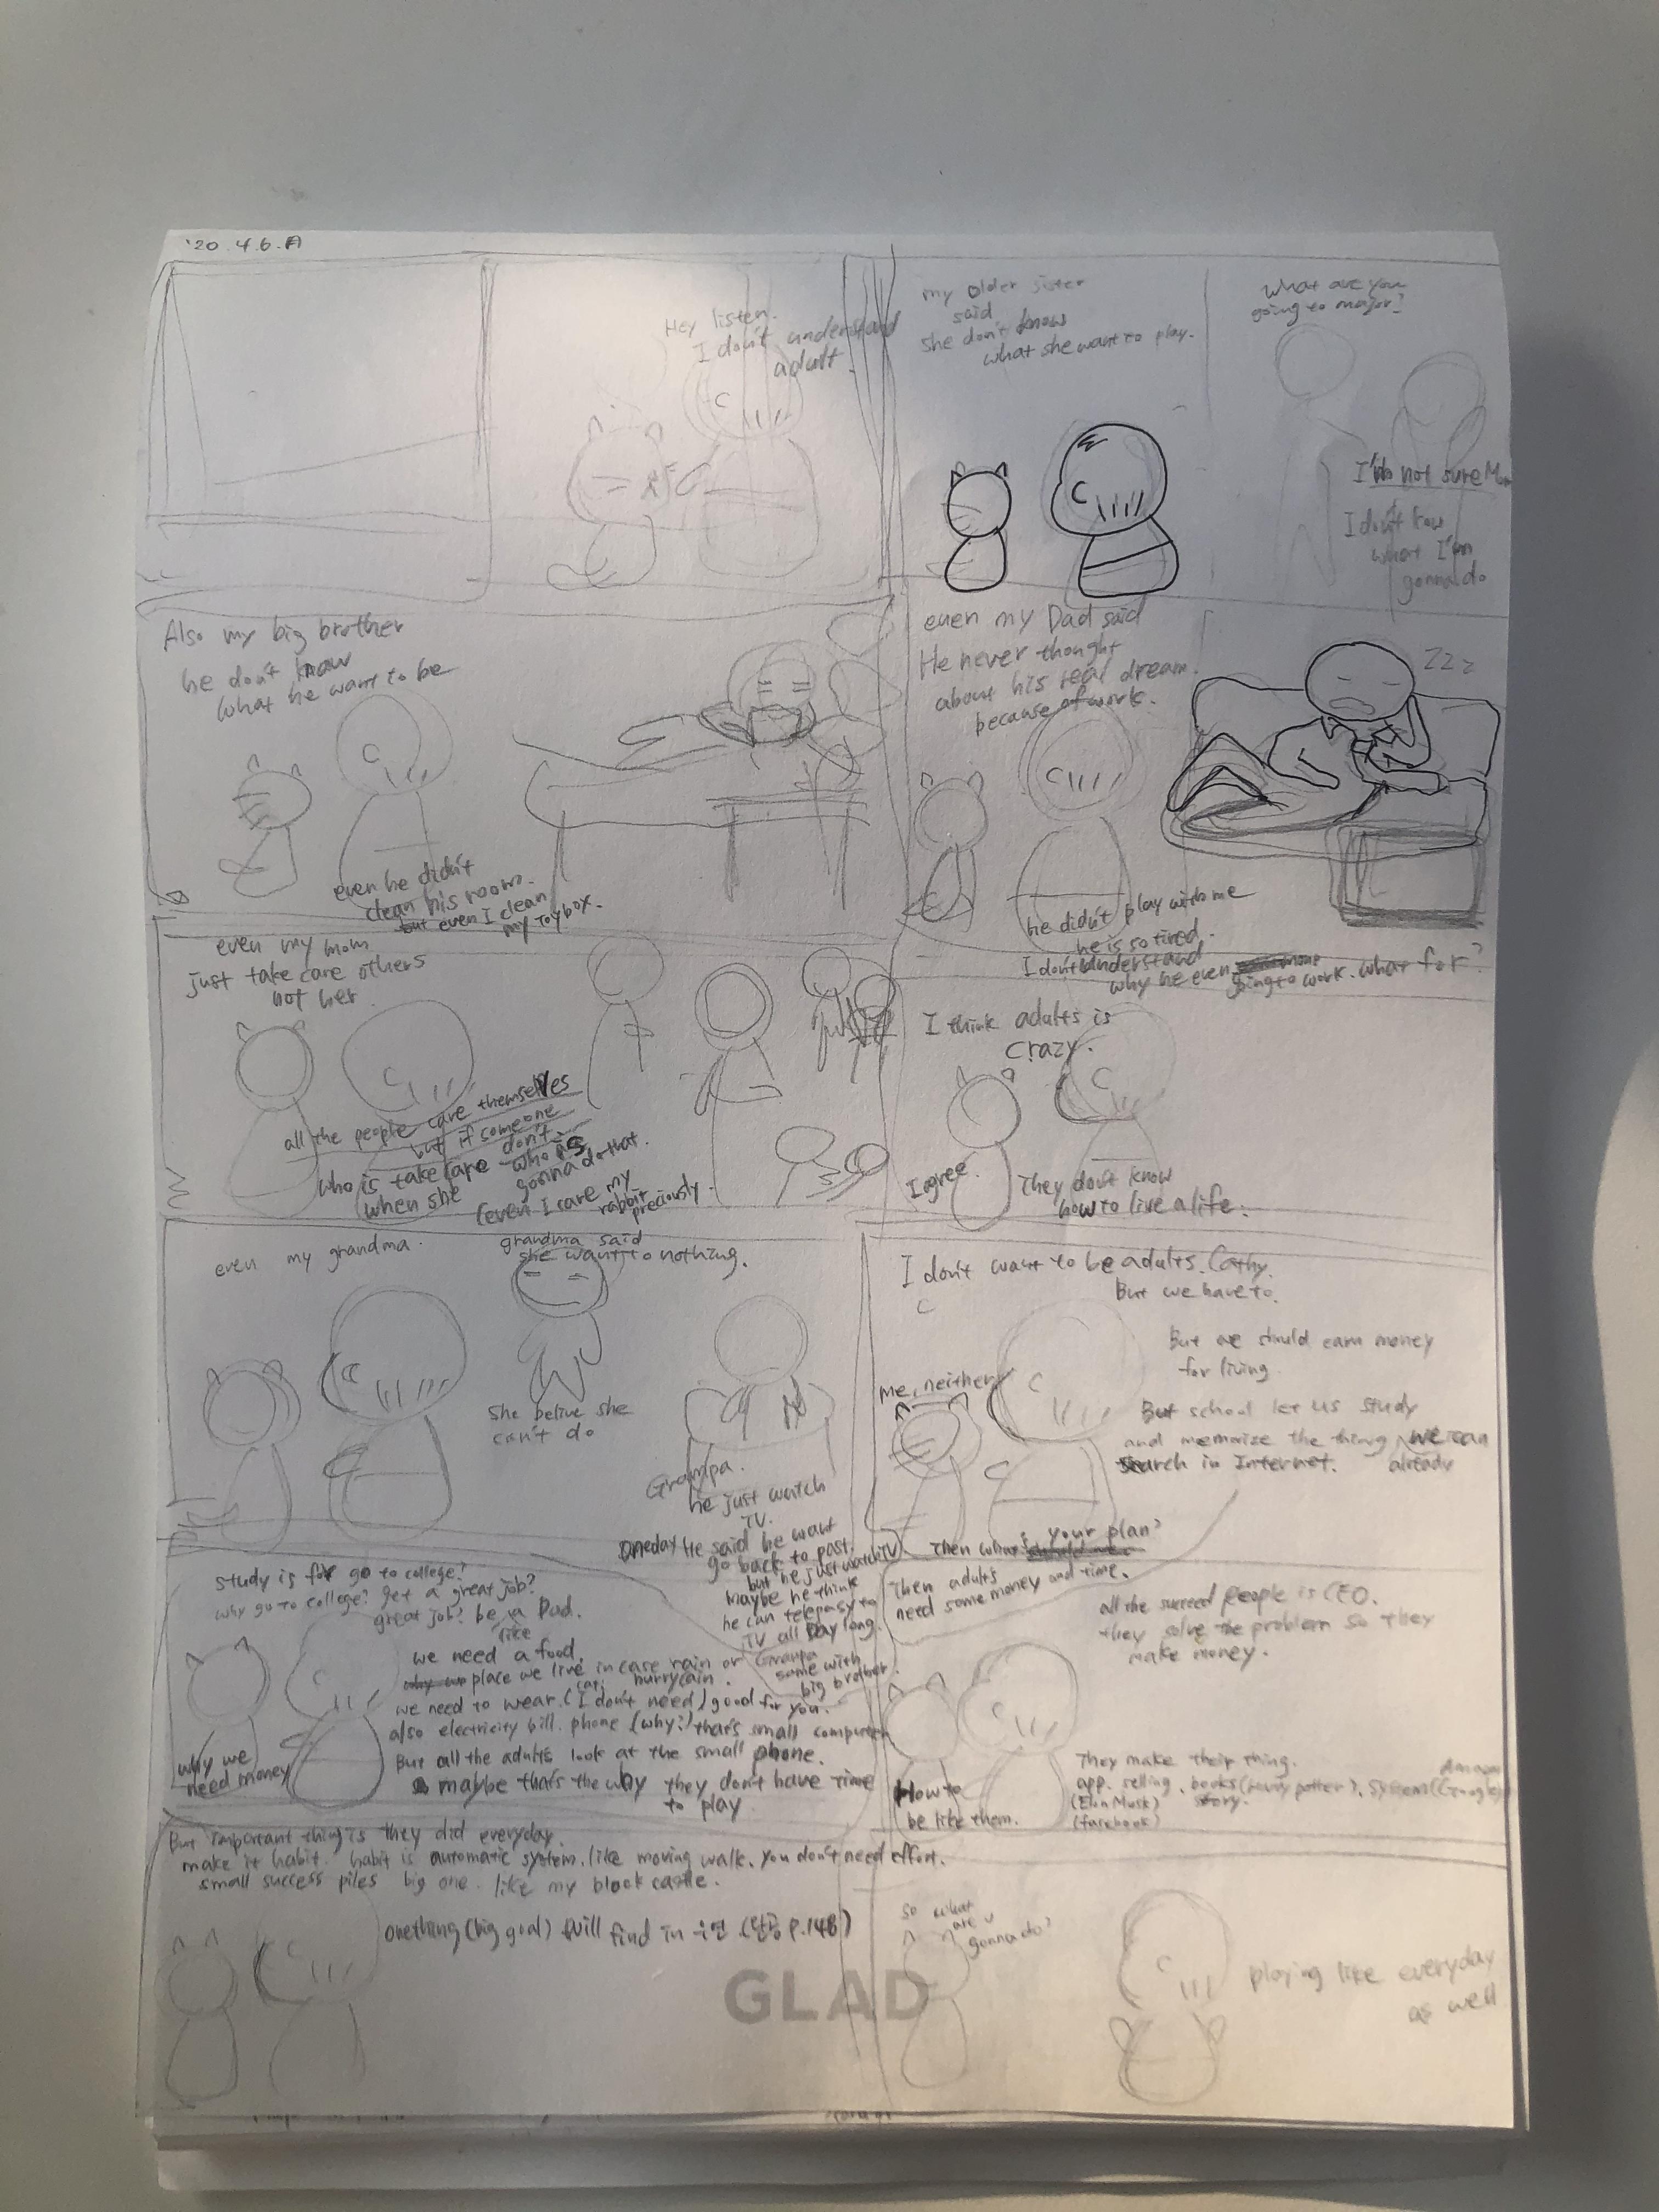 '20.4.6.A
Hey listen.
I don't understand
adult.
my older sister
said
she don't know
what she want to play.
What are you
going to major?
I'm not sure Mom
I don't know
what I'm
gonna do
Also my big brother
he don't know
what he want to be
even he didn't
clean his room.
but even I clean
my toybox.
even my Dad said
He never thought
about his real dream.
because of work.
Zzz
he didn't play with me
he is so tired.
I don't understand
why he even
going to work. what for?
even my mom
just take care others
not her.
all the people care themselves
but if someone
don't
who is take care who is
when she gonna do that.
(even I care my
rabbit
preciously.
I think adults is
crazy.
I agree.
They don't know
how to live a life.
even my grandma.
grandma said
she want to nothing.
She belive she
can't do
Grampa.
he just watch
TV.
Oneday He said he want
go back to past.
but he just watch TV
Maybe he think
he can telepasy to
TV all Day long.
Grampa
same with
big brother.
I don't want to be adults. Cathy.
But we have to.
me, neither
But we should earn money
for living.
But school let us study
and memorize the thing we can
already
search in Internet.
Then what is your plan?
Then adults
need some money and time.
study is for go to college?
why go to college? get a great job?
great job? be a Dad.
like
we need a food.
place we live in case rain or
hurrycain.
cat:
we need to wear. (I don't need) good for you.
also electricity bill. phone (why?) that's small computer
But all the adults look at the small phone.
maybe that's the why they don't have time
to play
why we
need money
all the succeed people is CEO.
they solve the problem so they
make money.
They make their thing.
Amazon
app. selling. books (Harry potter). system (Google)
(Elon Musk) story.
(facebook)
How to
be like them.
But important thing is they did everyday.
make it habit. habit is automatic system. like moving walk. you don't need effort.
small success piles big one. like my block castle.
onething (big goal) will find in 우연 (p.148)
so what
are u
gonna do?
playing like everyday
as well
GLAD